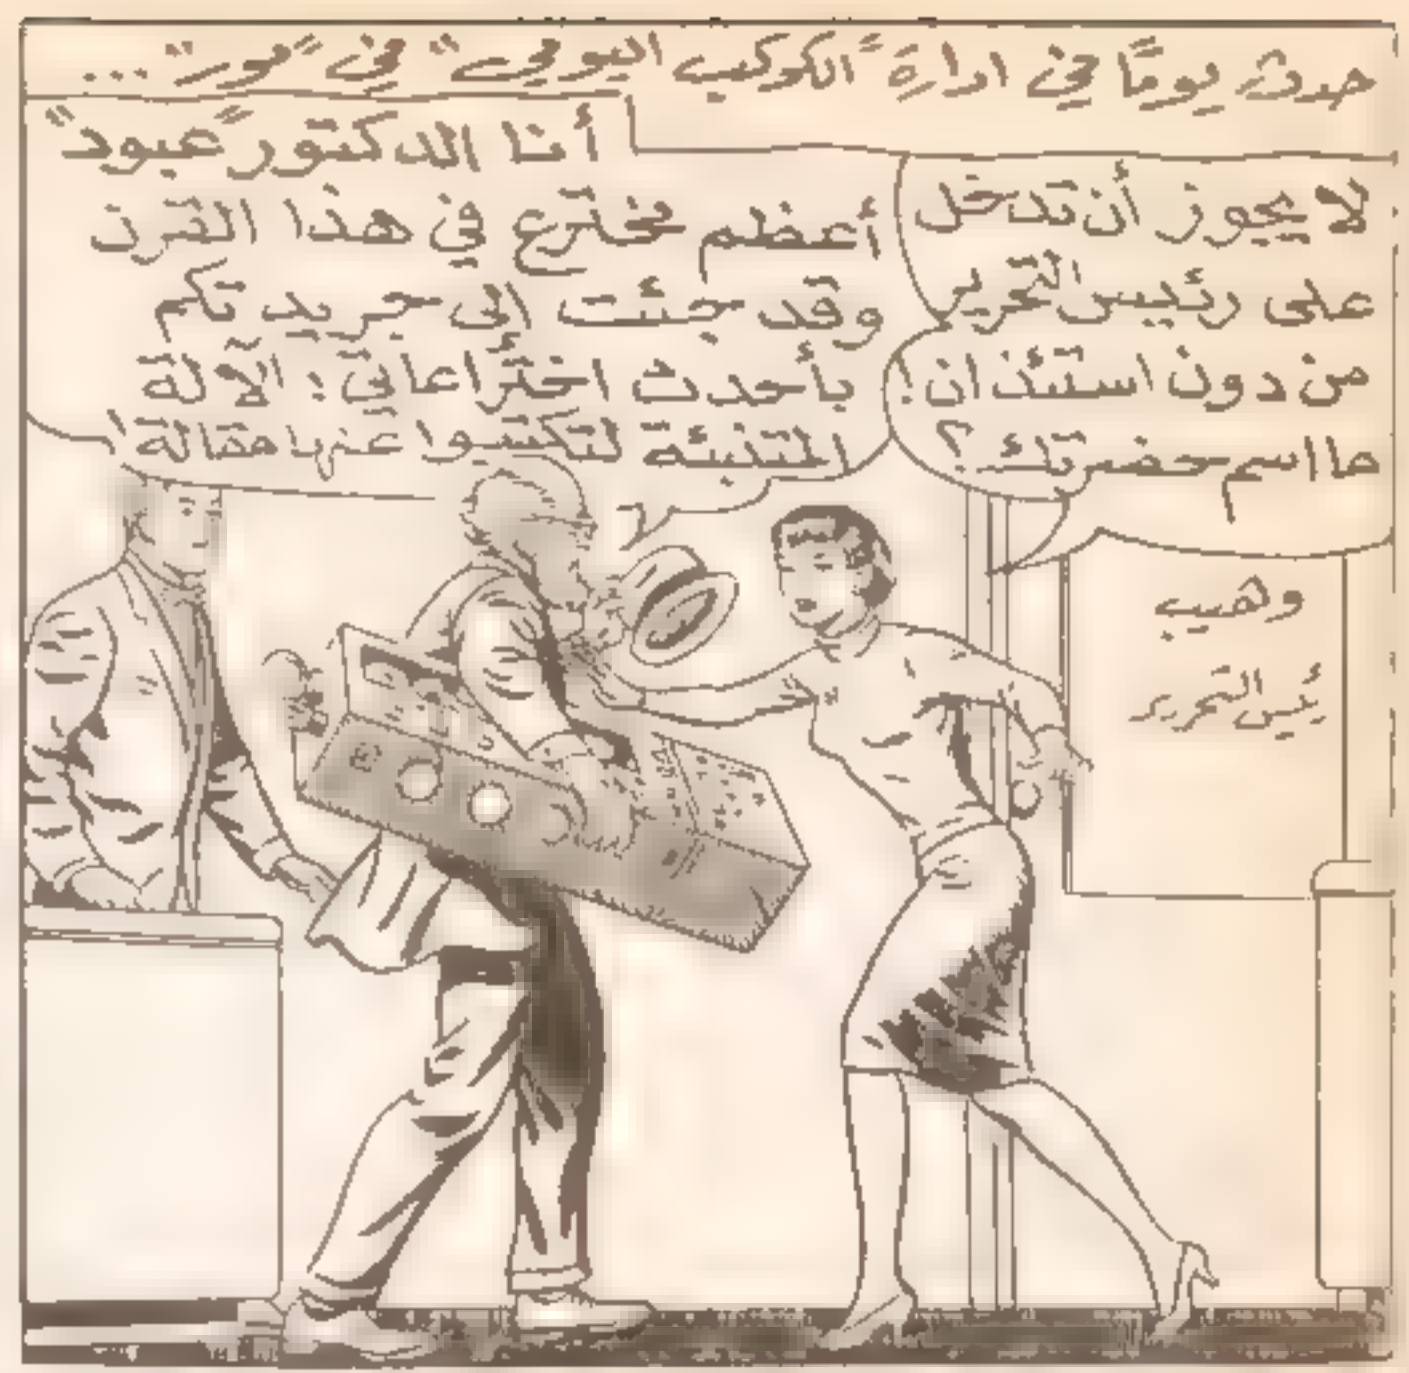 حدث يومًا في ادارة "الكوكب اليومي" في "صور"...
لا يجوز أن تدخل
على رئيس التحرير
من دون استئذان!
ما اسم حضرتك؟
أنا الدكتور "عبود"
أعظم مخترع في هذا القرن
وقد جئت إلى جريدتكم
بأحدث اختراعاتي: الآلة
المتنبئة لتكتبوا عنها مقالة!
وهيب
ئيس التحرير